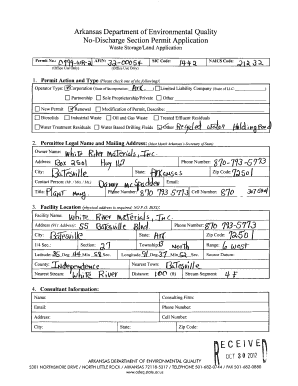 Arkansas Department of Environmental Quality
No-Discharge Section Permit Application
Waste Storage/Land Application
Permit No: 0199-WR-2 AFIN: 32-00054 SIC Code: 1442 NAICS Code: 21232
(Office Use Only) (Office Use Only)
1. Permit Action and Type (Please check one of the following)
Operator Type: Corporation (State of Incorporation: Ark. ) Limited Liability Company (State of LLC: )
Partnership Sole Proprietorship/Private Other:
New Permit Renewal Modification of Permit, Describe:
Biosolids Industrial Waste Oil and Gas Waste Treated Effluent Residuals
Water Treatment Residuals Water Based Drilling Fluids Other Recycled under Holding Pond
2. Permittee Legal Name and Mailing Address:
Owner Name: White River Materials, Inc.
Address: Box 2501 Hwy 167 Phone Number: 870-793-5773
City: Batesville State: Arkansas Zip Code: 72501
Contact Person (Mr. / Mrs. / Ms.) Danny McSpadden Email:
Title: Plant Mgr. Phone Number: 870 793 5773 Cell Number: 870
3. Facility Location (physical address is required. NO P.O. BOX):
Facility Name: White River Materials, Inc.
Address (911 Address): 55 Batesville Blvd. Phone Number: 870 793-5773
City: Batesville State: Ark Zip Code: 72501
1/4 Sec.: Section: 27 Township: North Range: 6 west
Latitude: 35 Deg Min Sec Longitude: 91 Deg 37 Min 52 Sec Source Datum:
County: Independence Nearest Town: Batesville
Nearest Stream: White River Distance: 100 (ft) Stream Segment: 4F
4. Consultant Information:
Name: Consulting Firm:
Email: Phone Number:
Address: Cell Number:
City: State: Zip Code:
RECEIVED
OCT 30 2012
ARKANSAS DEPARTMENT OF ENVIRONMENTAL QUALITY
5301 NORTHSHORE DRIVE / NORTH LITTLE ROCK / ARKANSAS 72118-5317 / TELEPHONE 501-682-0744 / FAX 501-682-0880
www.adeq.state.ar.us